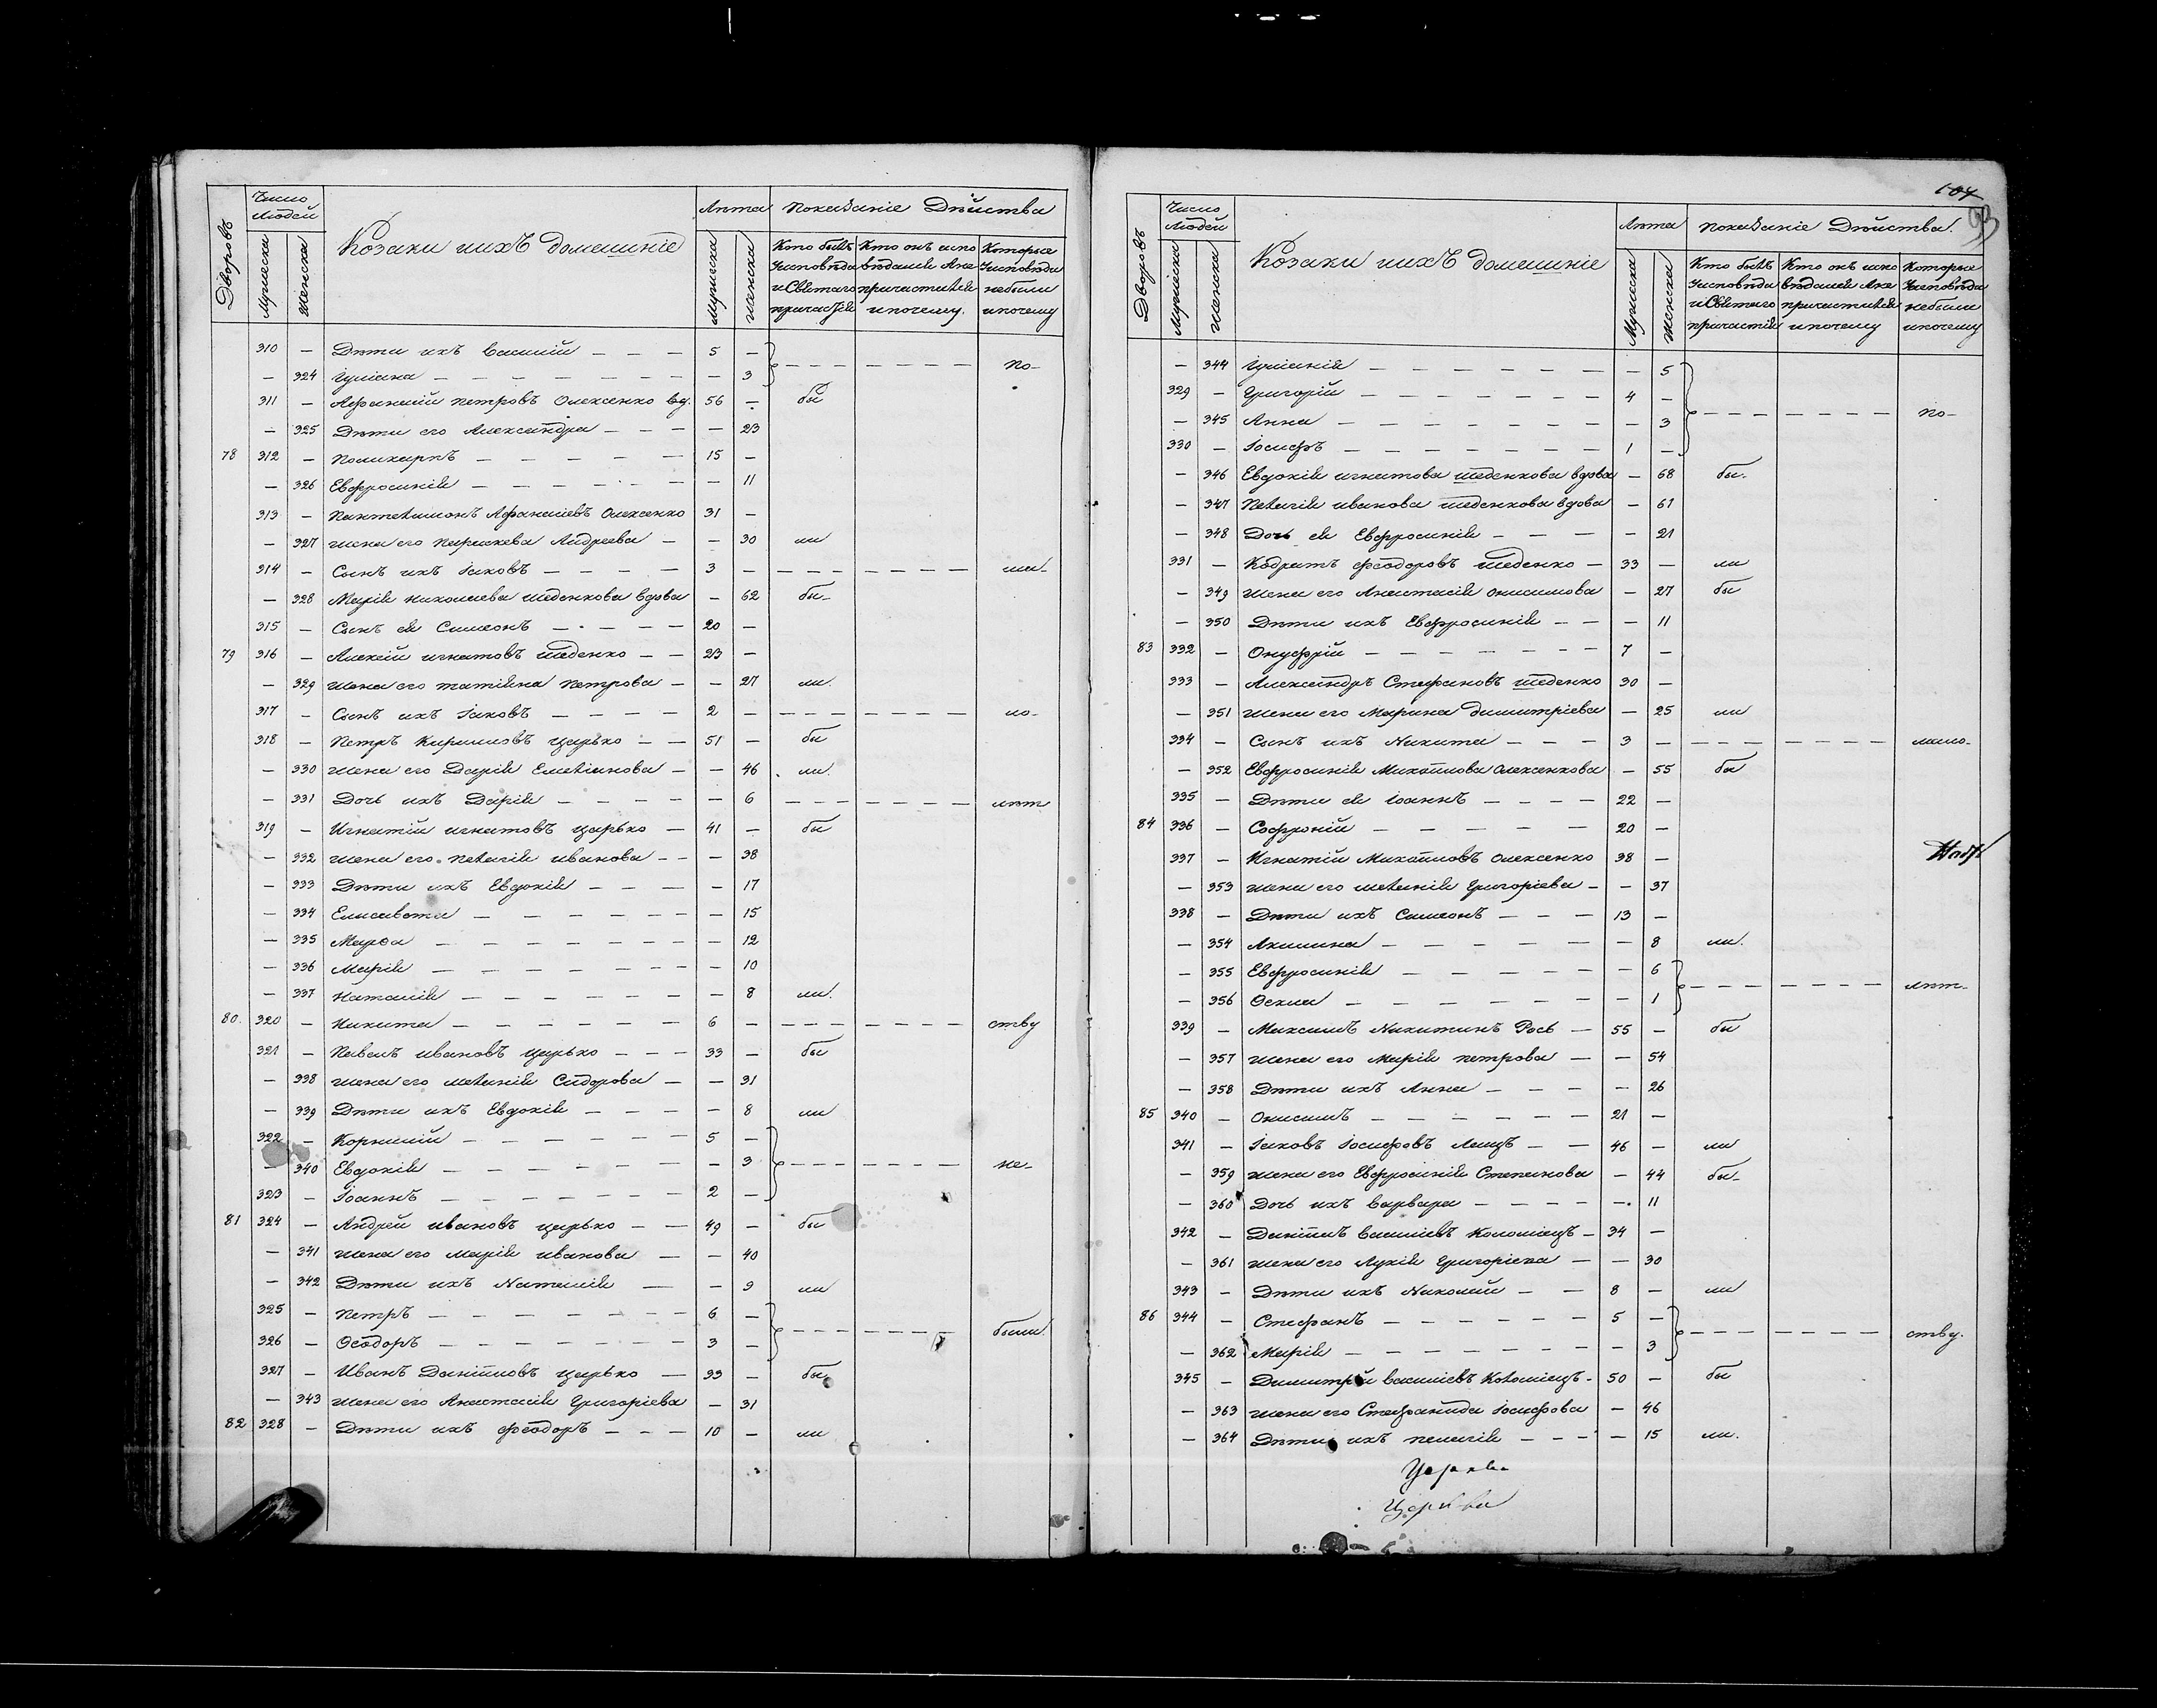 Дворовъ
Число людей
Мужеска
Женска
Козаки ихъ домашніе
Лѣта
Мужеска
Женска
Показаніе Дѣйства
Кто былъ у исповѣди и Святаго причастія
Кто онъ испо вѣдался А не причастился и почему.
Которые у исповѣди небыли и почему
310 — Дѣти ихъ Василій — — — 5 —
— 324 Іуліана — — — — — — — 3 — — — — — — — по-
311 — Афанасій Петровъ Олексенко вд. 56 — бы
— 325 Дѣти его Александра — — — — 23
78 312 — Поликарпъ — — — — — 15 —
— 326 Евфросинія — — — — — — 11
313 — Пантелимонъ Афанасіевъ Олексенко 31 —
— 327 жена его Параскева Андреева — — 30 ли
314 — Сынъ ихъ Іаковъ — — — — 3 — — — — — — — — ма-
— 328 Марія Николаева Шеденкова вдова — 62 бы-
315 — Сынъ ея Симеонъ — — — — — 20 —
79 316 — Алексій Игнатовъ Шеденко — — 23 —
— 329 жена его Татіяна Петрова — — 27 ли.
317 — Сынъ ихъ Іаковъ — — — — 2 — — — — — — — — ло-
318 — Петръ Кириловъ Царько — — 51 — бы
— 330 жена его Дарія Емеліанова — — 46 ли.
— 331 Дочь ихъ Дарія — — — — — 6 — — — — — — — лѣт
319 — Игнатій Игнатовъ Царько — 41 — бы
— 332 жена его Пелагія Иванова — — — 38
— 333 Дѣти ихъ Евдокія — — — — 17
— 334 Елисавета — — — — — — — 15
— 335 Марѳа — — — — — — — 12
— 336 Марія — — — — — — — — 10
— 337 Наталія — — — — — — — 8 ли.
80. 320 — Никита — — — — — — — 6 — — — — — — — — ству
321 — Павелъ Ивановъ Царько — — — 33 — бы
— 338 жена его Меланія Сидорова — — 31
— 339 Дѣти ихъ Евдокія — — — — — 8 ли
322 — Корнилій — — — — — — 5 —
— 340 Евдокія — — — — — — — 3 — — — — — — — не-
323 — Іоаннъ — — — — — — — 2 —
81 324 — Андрей Ивановъ Царько — — 49 — бы
— 341 жена его Марія Иванова — — 40
— 342 Дѣти ихъ Наталія — — 9 ли
325 — Петръ — — — — — — — 6 —
326 — Ѳеодоръ — — — — — — — 3 — — — — — — — были.
327 — Иванъ Даніиловъ Царько — 33 — бы
— 343 жена его Анастасія Григоріева — 31
82 328 — Дѣти ихъ Феодоръ — — — 10 — ли
107
93
Дворовъ
Число людей
Мужеска
Женска
Козаки ихъ домашніе
Лѣта
Мужеска
Женска
Показаніе Дѣйства.
Кто былъ у исповѣди и Святаго причастія
Кто онъ испо вѣдался А не причастился и почему
Которые у исповѣди небыли и почему
— 344 Іуліанія — — — — — — — 5
329 — Григорій — — — — — — — 4 —
— 345 Анна — — — — — — — — 3 — — — — — — — по-
330 — Іосифъ — — — — — — — 1 —
— 346 Евдокія Игнатова Шеденкова вдова — 68 бы-
— 347 Пелагія Иванова Шеденкова вдова — 61
— 348 Дочь ея Евфросинія — — — — 21
331 — Кодратъ Феодоровъ Шеденко — 33 — ли
— 349 жена его Анастасія Онисимова — 27 бы
— 350 Дѣти ихъ Евфросинія — — — 11
83 332 — Онуфрій — — — — — — — 7 —
333 — Александръ Стефановъ Шеденко 30 —
— 351 жена его Марина Димитріева — 25 ли
334 — Сынъ ихъ Никита — — — 3 — — — — — — — — мало-
— 352 Евфросинія Михаилова Олексенкова — 55 бы
335 — Дѣти ея Іоаннъ — — — — 22 —
84 336 — Софроній — — — — — 20 —
337 — Игнатій Михаиловъ Олексенко 38 —
— 353 жена его Меланія Григоріева — — 37
338 — Дѣти ихъ Симеонъ — — — 13 —
— 354 Акилина — — — — — — 8 ли.
— 355 Евфросинія — — — — — — 6
— 356 Ѳекла — — — — — — — 1 — — — — — — — лѣт-
339 — Максимъ Никитинъ Рось — 55 — бы
— 357 жена его Марія Петрова — — 54
— 358 Дѣти ихъ Анна — — — — 26
85 340 — Онисимъ — — — — — — 21 —
341 — Іаковъ Іосифовъ Лещъ — — 46 — ли
— 359 жена его Евфросинія Степанова — 44 бы-
— 360 Дочь ихъ Варвара — — — — —. 11
342 — Даніилъ Василіевъ Коломіецъ — 34 —
— 361 жена его Лукія Григоріева — — 30
343 — Дѣти ихъ Николай — — 8 — ли
86 344 — Стефанъ — — — — — — 5 —
— 362 Марія — — — — — — — — 3 — — — — — — — ству.
345 — Димитрій Василіевъ Коломіецъ - 50 — бы
— 363 жена его Стефанида Іосифова — 46
— 364 Дѣти ихъ Пелагія — — — — 15 ли.
Церква